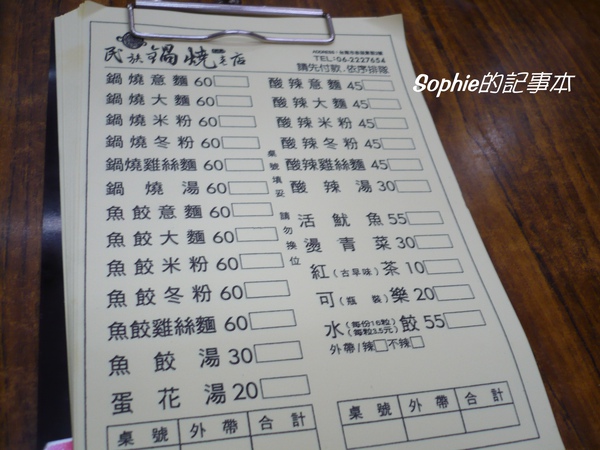 民族鍋燒老店
TEL:06-2227654
請先付款、依序排隊
Sophie的記事本
鍋燒意麵 60
鍋燒大麵 60
鍋燒米粉 60
鍋燒冬粉 60
鍋燒雞絲麵 60
鍋燒湯 60
魚餃意麵 60
魚餃大麵 60
魚餃米粉 60
魚餃冬粉 60
魚餃雞絲麵 60
魚餃湯 30
蛋花湯 20
桌號填妥
請勿換位
酸辣意麵 45
酸辣大麵 45
酸辣米粉 45
酸辣冬粉 45
酸辣雞絲麵 45
酸辣湯 30
活魷魚 55
燙青菜 30
紅(古早味)茶 10
可(瓶裝)樂 20
水(每份16粒)(每粒3.5元)餃 55
外帶/辣 不辣
桌號 外帶 合計
桌號 外帶 合計